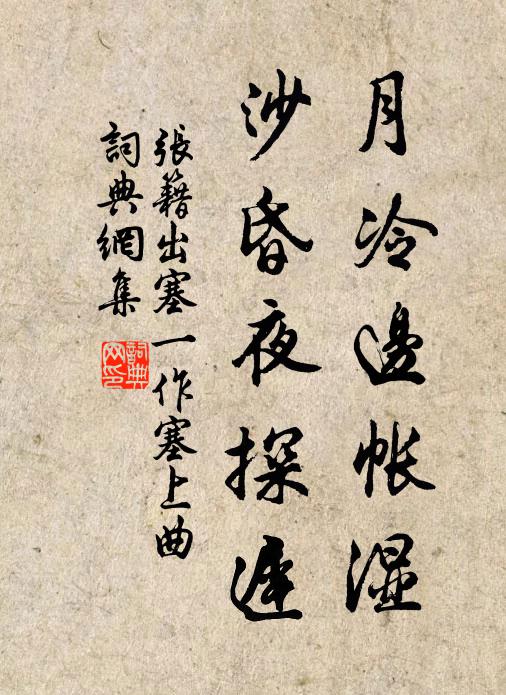 月冷邊帳濕
沙昏夜探遲
張籍出塞一作塞上曲
詞典網集
詞典網印